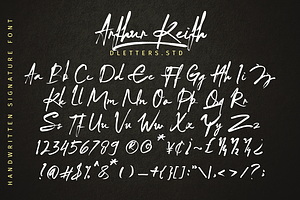 Arthur Keith
DLETTERS.STD
HANDWRITTEN SIGNATURE FONT
Aa Bb Cc Dd Ee Ff Gg Hh Ii Jj
Kk Ll Mm Nn Oo Pp Qq Rr
Ss Tt Uu Vv Ww Xx Yy Zz